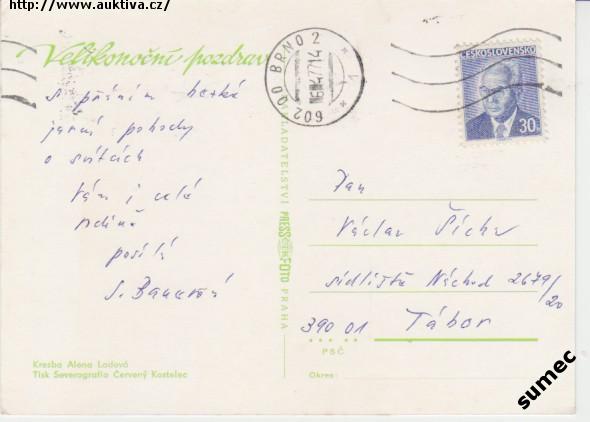 http://www.auktiva.cz/
Velikonoční pozdrav
602 00 BRNO 2
1
ČESKOSLOVENSKO
30
S přáním hezké
jarní pohody
o svátcích
Vám i celé
rodině
posílá
Pan
Václav
sídliště Náchod 2679/20
390 01 Tábor
PSČ
Okres:
NAKLADATELSTVÍ PRESSFOTO PRAHA
Kresba Alena Ladová
Tisk Severografia Červený Kostelec
sumec